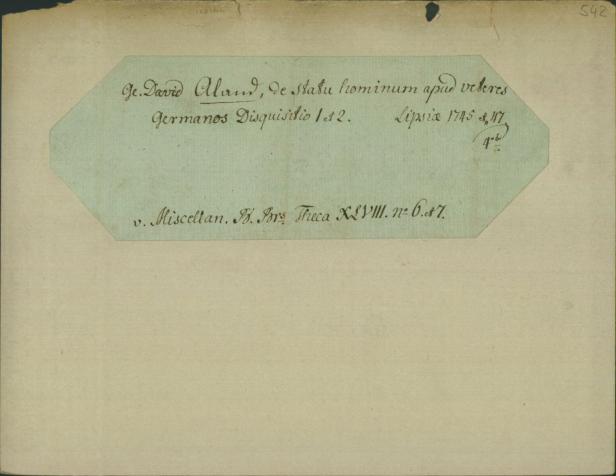 542
Ge. David Aland, de statu hominum apud veteres
Germanos Disquisitio 1 et 2. Lipsiæ 1745 et 47
4to
v. Miscellan. B. Brs. Theca XLVIII. no 6. et 7.